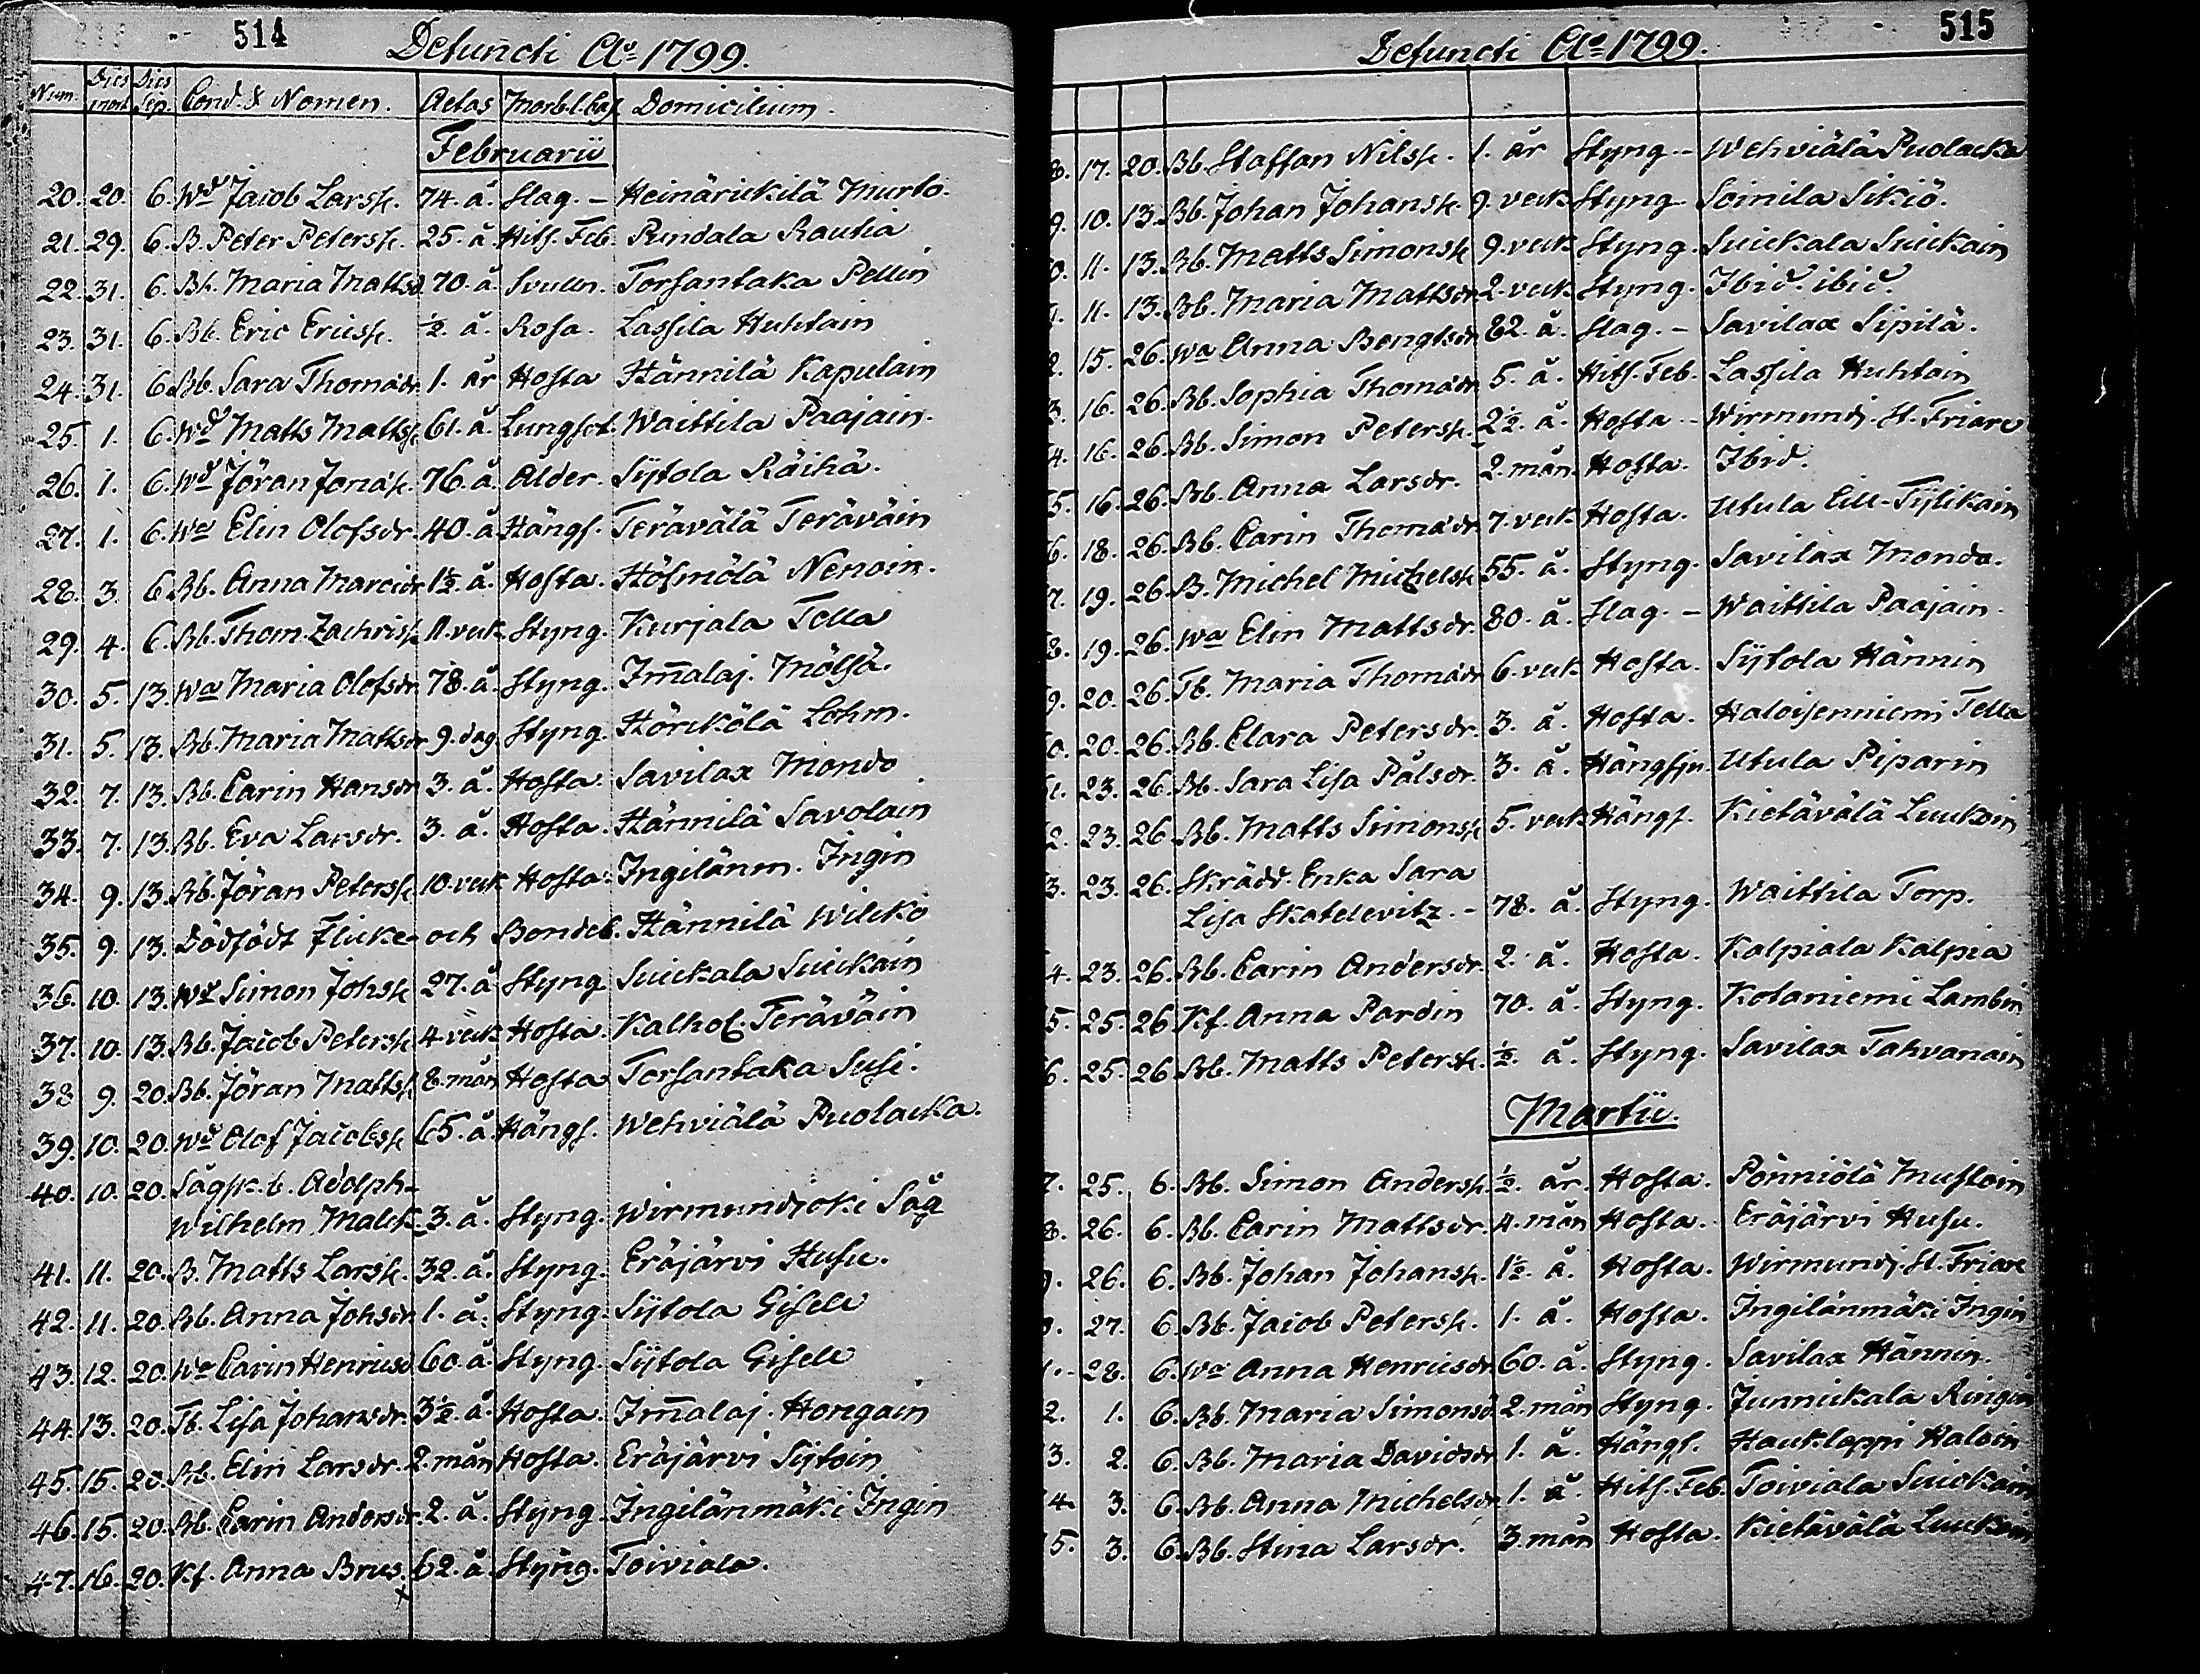 514
Defuncti Ao 1799.
Num. Dies mort. Dies Sep. Cond. & Nomen. Aetas Morb. l. Cas. Domicilium.
Februarii
20. 20. 6. Wd Jacob Larss. 74. å. Slag. – Heinärickilä Murto.
21. 29. 6. B. Peter Peterss. 25. å. Hits. Feb. Rindala Rautia
22. 31. 6. Bh. Maria Mattsd. 70. å. Svulln. Torsantaka Pellin
23. 31. 6. Bb. Eric Ericss. ½. å. Rosa. Lassila Huhtain
24. 31. 6. Bb. Sara Thomædr. 1. år Hosta Hännilä Kapulain
25. 1. 6. Wd Matts Mattss. 61. å. Lungsot. Waittila Paajain.
26. 1. 6. Wd Jöran Jonæs. 76. å. Ålder. Sijtola Räihä.
27. 1. 6. Wa Elin Olofsdr. 40. å. Hängs. Terävälä Teräväin
28. 3. 6. Bb. Anna Marcidr. 1½. å. Hosta. Hösmölä Nenoin.
29. 4. 6. Bb. Thom. Zachriss. 11. vek. Styng. Kurjala Tella
30. 5. 13. Wa Maria Olofsdr. 78. å. Styng. Im̄alaj. Mölsä.
31. 5. 13. Bb. Maria Mattsdr. 9. dag. Styng. Hörikölä Lohm.
32. 7. 13. Bb. Carin Hansdr. 3. å. Hosta. Savilax Mondo
33. 7. 13. Bb. Eva Larsdr. 3. å. Hosta. Hännilä Savolain
34. 9. 13. Bb. Jöran Peterss. 10. vek Hosta. Ingilänm. Ingin
35. 9. 13. Dödfödt Flicke- och Bondeb. Hännilä Wilcko
36. 10. 13. Wd Simon Johss. 27. å Styng Suickala Suickain
37. 10. 13. Bb. Jacob Peterss. 4 vek Hosta. Kalhol. Teräväin
38 9. 20. Bb. Jöran Mattss. 8. mån Hosta Torsantaka Susi.
39. 10. 20. Wd Olof Jacobss. 65. å. Hängs. Wehviälä Puolacka.
40. 10. 20. Sågsk. b. Adolph-
Wilhelm Malck 3. å. Styng. Wirmundjoki Såg
41. 11. 20. B. Matts Larss. 32. å. Styng. Eräjärvi Husu.
42. 11. 20. Bb. Anna Johsdr. 1. å. Styng. Sijtola Gisele
43. 12. 20. Wa Carin Henricsd 60. å. Styng. Sijtola Gisele
44. 13. 20. Tb. Lisa Johansdr. 3½. å. Hosta. Im̄alaj. Hongain
45. 15. 20. Bb. Elin Larsdr. 2. mån Hosta. Eräjärvi Sijtoin
46. 15. 20. Bb. Carin Andersdr. 2. å. Styng. Ingilänmäki Ingin
47. 16. 20. Kf. Anna Brus. 62. å. Styng. Toiviala.
515
Defuncti Ao 1799.
8. 17. 20. Bb. Staffan Nilss. 1. år Styng. – Wehviälä Puolacka
9. 10. 13. Bb. Johan Johanss. 9. veck Styng Soinila Sikiö.
0. 11. 13. Bb. Matts Simonss. 9. veck Styng. Suickala Suickain
1. 11. 13. Bb. Maria Mattsdr. 2. veck Styng. Ibid. ibid.
2. 15. 26. Wa Anna Bengtsdr. 82. å. Slag. – Savilax Sipilä.
3. 16. 26. Bb. Sophia Thomædr. 5. å. Hits. Feb. Lassila Huhtain
4. 16. 26. Bb. Simon Peterss. 2½. å. Hosta – Wirmundj. St. Friare
5. 16. 26. Bb. Anna Larsdr. 2. mån. Hosta. Ibid.
6. 18. 26. Bb. Carin Thomædr. 7. vek Hosta. Utula Eill-Tijlikain
7. 19. 26. B. Michel Michelss. 55. å. Styng. Savilax Mondo.
8. 19. 26. Wa Elin Mattsdr. 80. å. Slag. – Waittila Paajain.
9. 20. 26. Tb. Maria Thomædr 6. vek Hosta. Sijtola Hännin
0. 20. 26. Bb. Clara Petersdr. 3. å. Hosta. Haloisenniemi Tella
1. 23. 26. Bb. Sara Lisa Pålsdr. 3. å. Hängsju. Utula Piparin
2. 23. 26. Bb. Matts Simonss. 5. vek Hängs. Kietävälä Luukoin
3. 23. 26. Skrädd. Enka Sara
Lisa Skotelevitz. – 78. å. Styng. Waittila Torp.
4. 23. 26. Bb. Carin Andersdr. 2. å. Hosta. Kalpiala Kalpia
5. 25. 26 Kf. Anna Pardin 70. å. Styng. Kotaniemi Lambin
6. 25. 26 Bb. Matts Peterss. ½. å. Styng. Savilax Tahvanain
Martii.
7. 25. 6. Bb. Simon Anderss. ½. år. Hosta. Pönniölä Mustoin
8. 26. 6. Bb. Carin Mattsdr. 4. mån Hosta. Eräjärvi Husu.
9. 26. 6. Bb. Johan Johanss. 1½. å. Hosta. Wirmundj. St. Friare
0. 27. 6. Bb. Jacob Peterss. 1. å. Hosta. Ingilänmäki Ingin
1. 28. 6. Wa Anna Henricsdr. 60. å. Styng. Savilax Hännin.
2. 1. 6. Bb. Maria Simonsd 2. mån Styng. Junnickala Ringin
3. 2. 6. Bb. Maria Davidsdr. 1. å. Hängs. Haukloppi Haloin
4. 3. 6. Bb. Anna Michelsdr. 1. å. Hits. Feb. Toiviala Suickain
5. 3. 6. Bb. Stina Larsdr. 3. mån Hosta. Kietävälä Luukoin